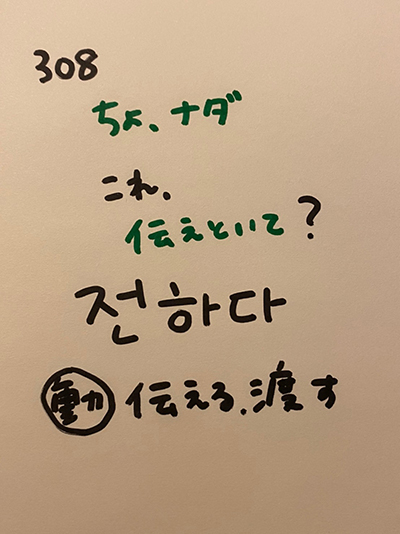 308
ちょ、ナダ
これ、
伝えといて?
전하다
動 伝える、渡す